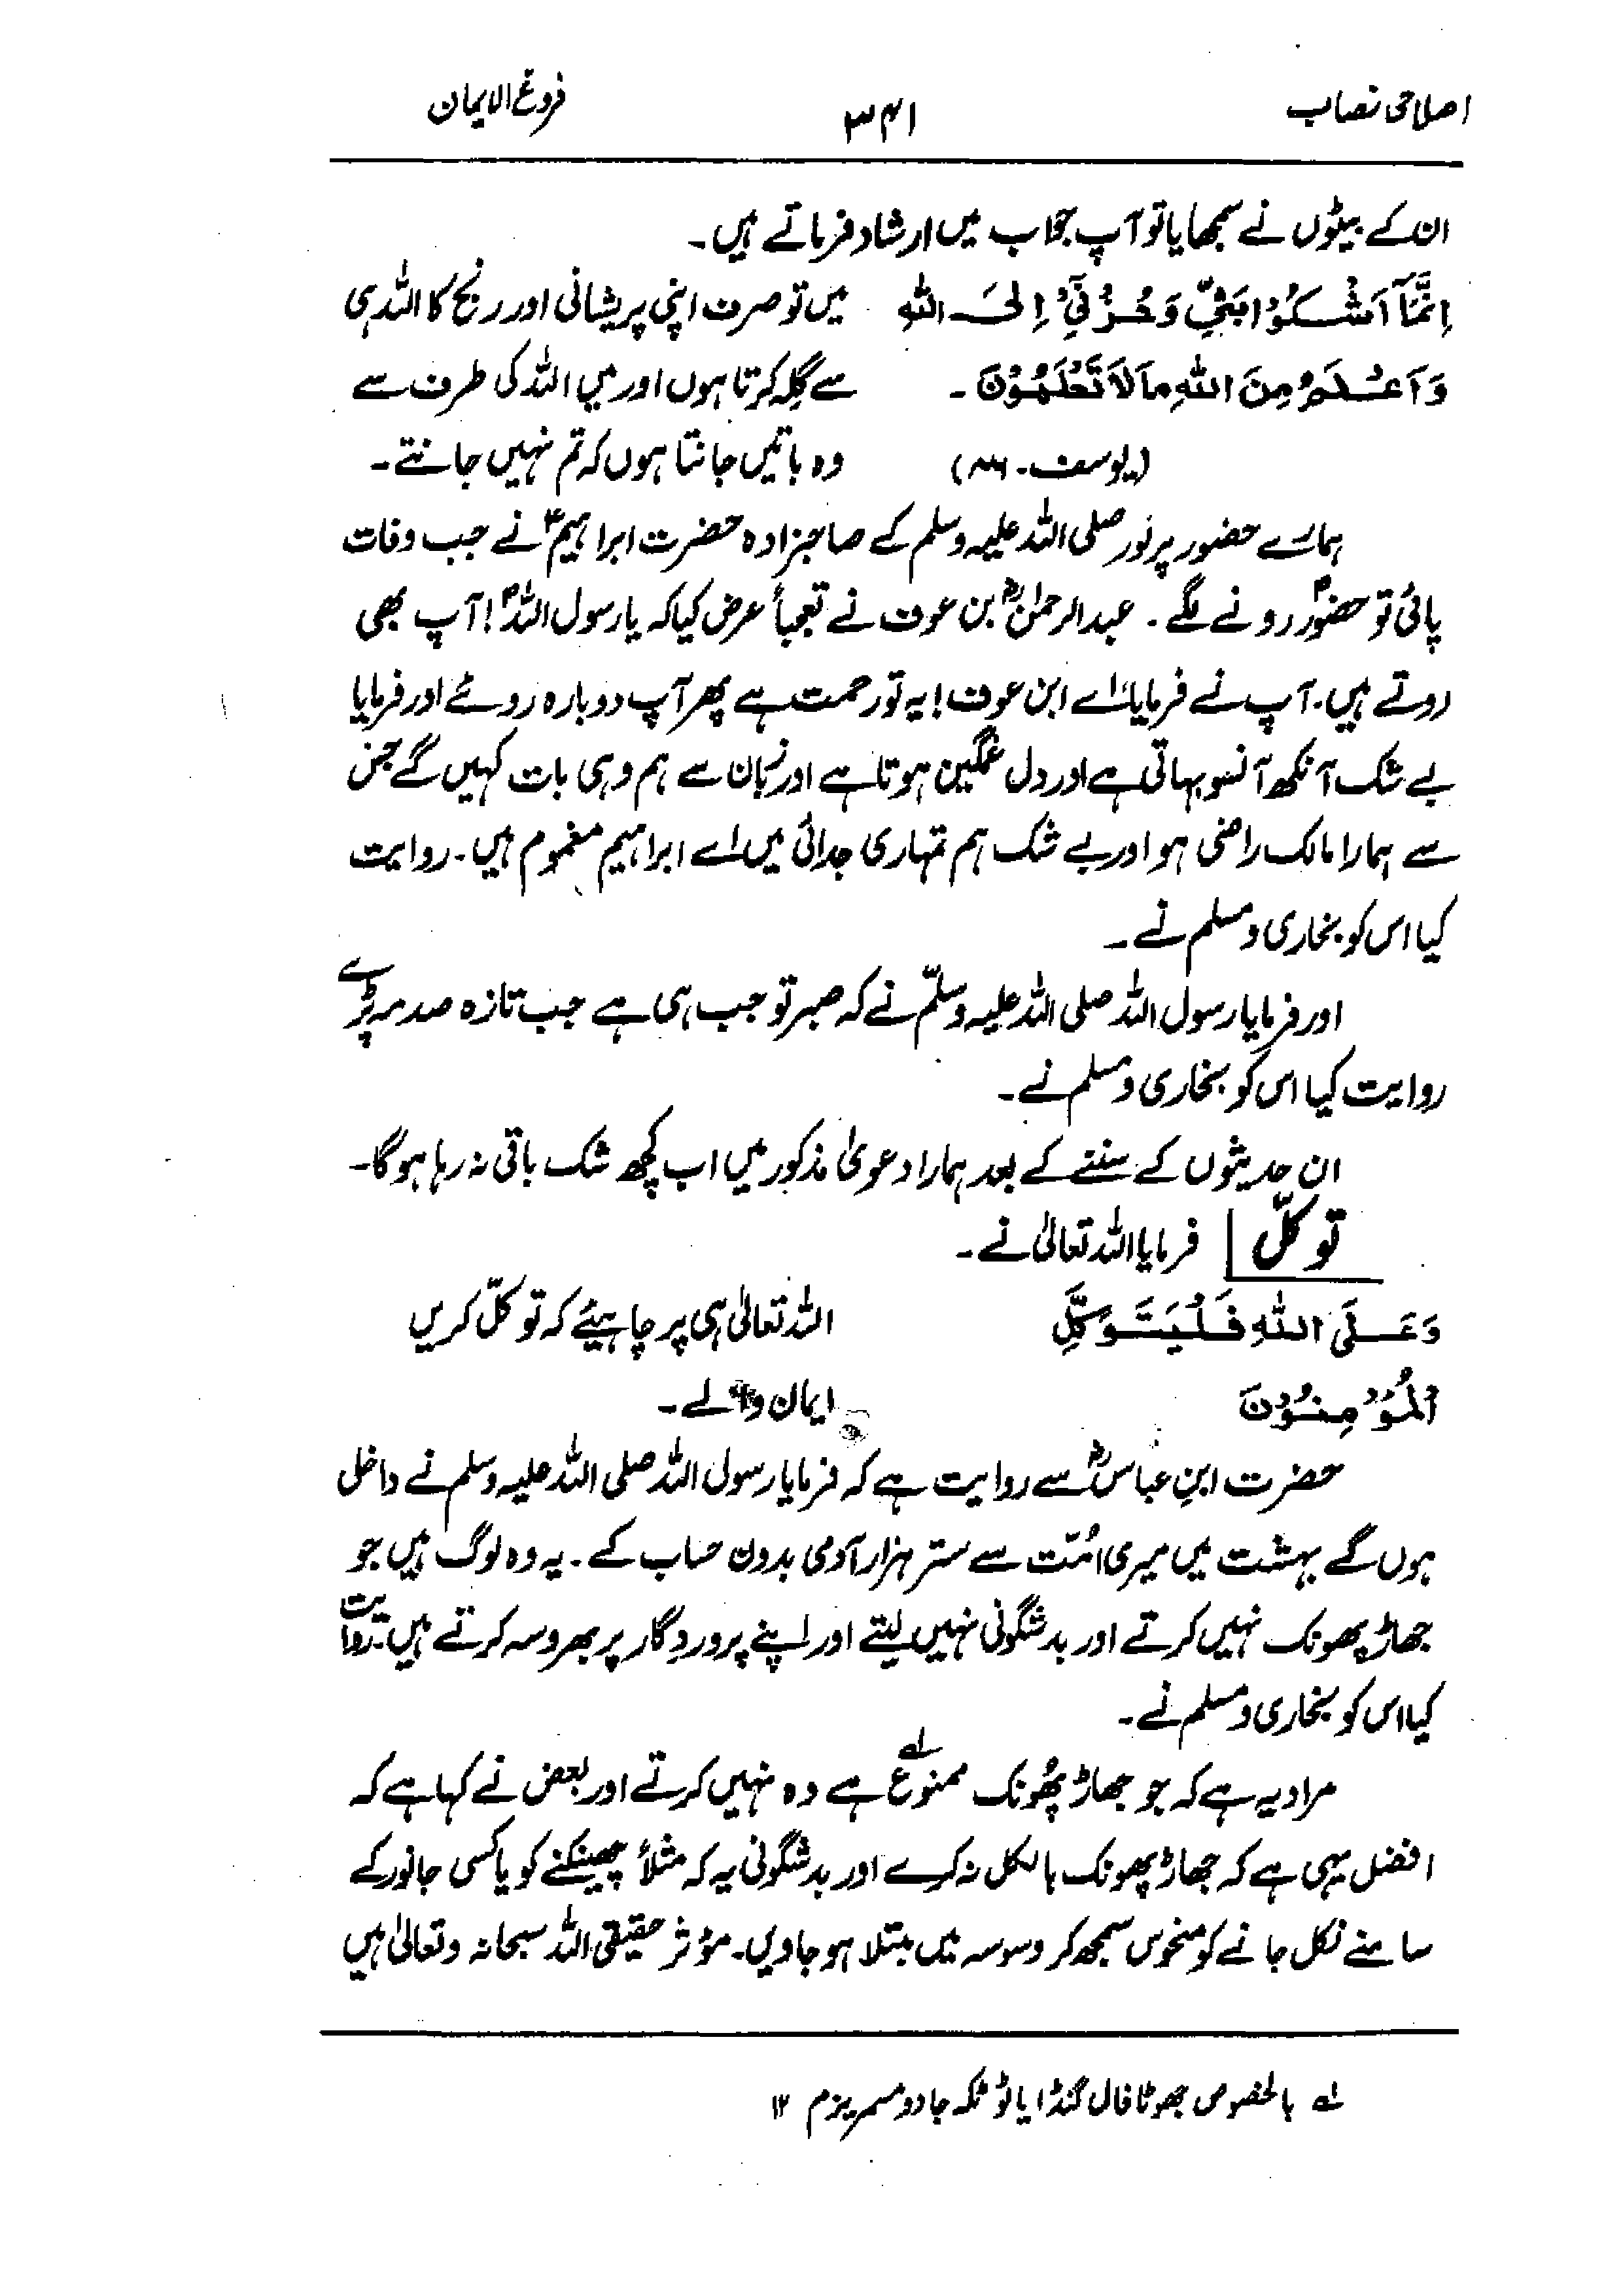 اصلاحی نصاب ۳۴۱ فروغ الایمان
ان کے بیٹوں نے سمجھایا تو آپ جواب میں ارشاد فرماتے ہیں۔
اِنَّمَآ اَشْكُوْا بَثِّيْ وَحُزْنِيْٓ اِلَى اللّٰهِ میں تو صرف اپنی پریشانی اور رنج کا اللہ ہی
وَاَعْلَمُ مِنَ اللّٰهِ مَا لَا تَعْلَمُوْنَ۔ سے گِلہ کرتا ہوں اور میں اللہ کی طرف سے
(یوسف۔ ۸۶) وہ باتیں جانتا ہوں کہ تم نہیں جانتے۔
ہمارے حضور پرنور صلی اللہ علیہ وسلم کے صاحبزادہ حضرت ابراہیمؑ نے جب وفات
پائی تو حضورؐ رونے لگے۔ عبدالرحمٰنؓ بن عوف نے تعجباً عرض کیا کہ یا رسول اللہؐ! آپ بھی
روتے ہیں۔ آپ نے فرمایا، اے ابن عوف! یہ تو رحمت ہے پھر آپ دوبارہ روئے اور فرمایا
بے شک آنکھ آنسو بہاتی ہے اور دل غمگین ہوتا ہے اور زبان سے ہم وہی بات کہیں گے جس
سے ہمارا مالک راضی ہو اور بے شک ہم تمہاری جدائی میں اے ابراہیم مغموم ہیں۔ روایت
کیا اس کو بخاری و مسلم نے۔
اور فرمایا رسول اللہ صلی اللہ علیہ وسلّم نے کہ صبر تو جب ہی ہے جب تازہ صدمہ پڑے
روایت کیا اس کو بخاری و مسلم نے۔
ان حدیثوں کے سننے کے بعد ہمارا دعویٰ مذکور میں اب کچھ شک باقی نہ رہا ہوگا۔
توکلّ | فرمایا اللہ تعالیٰ نے۔
وَعَلَى اللّٰهِ فَلْيَتَوَكَّلِ اللہ تعالیٰ ہی پر چاہیئے کہ توکلّ کریں
الْمُؤْمِنُوْنَ ایمان والے۔
حضرت ابنِ عباسؓ سے روایت ہے کہ فرمایا رسول اللہ صلی اللہ علیہ وسلم نے داخل
ہوں گے بہشت میں میری اُمّت سے ستر ہزار آدمی بدون حساب کے۔ یہ وہ لوگ ہیں جو
جھاڑ پھونک نہیں کرتے اور بدشگونی نہیں لیتے اور اپنے پروردگار پر بھروسہ کرتے ہیں۔ روایت
کیا اس کو بخاری و مسلم نے۔
مراد یہ ہے کہ جو جھاڑ پھُونک ممنوع لے ہے وہ نہیں کرتے اور بعض نے کہا ہے کہ
افضل یہی ہے کہ جھاڑ پھونک بالکل نہ کرے اور بدشگونی یہ کہ مثلاً چھینکنے کو یا کسی جانور کے
سامنے نکل جانے کو منحوس سمجھ کر وسوسہ میں مبتلا ہو جاویں۔ مؤثر حقیقی اللہ سبحانہ وتعالیٰ ہیں
لے بالخصوص جھوٹا فال گنڈا یا ٹوٹکہ جادو مسمریزم ۱۲